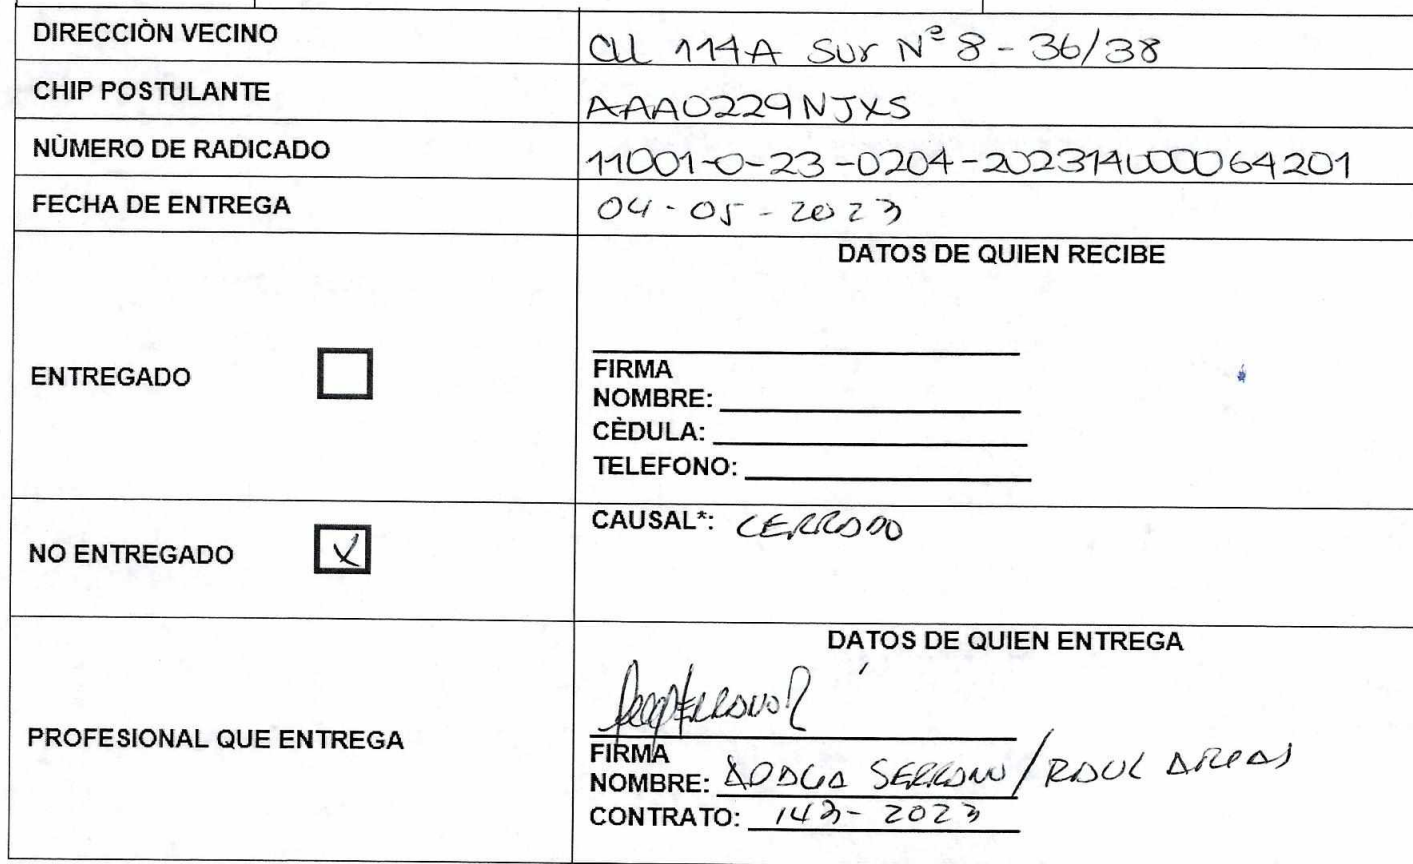 DIRECCIÒN VECINO
CLL 114A SUr Nº 8 - 36/38
CHIP POSTULANTE
AAA0229NJXS
NÙMERO DE RADICADO
11001-0-23-0204-202314000064201
FECHA DE ENTREGA
04-05-2023
DATOS DE QUIEN RECIBE
ENTREGADO
FIRMA
NOMBRE:
CÈDULA:
TELEFONO:
NO ENTREGADO X
CAUSAL*: CERRADO
DATOS DE QUIEN ENTREGA
PROFESIONAL QUE ENTREGA
FIRMA
NOMBRE: SERRANO / RAUL
CONTRATO: 143-2023